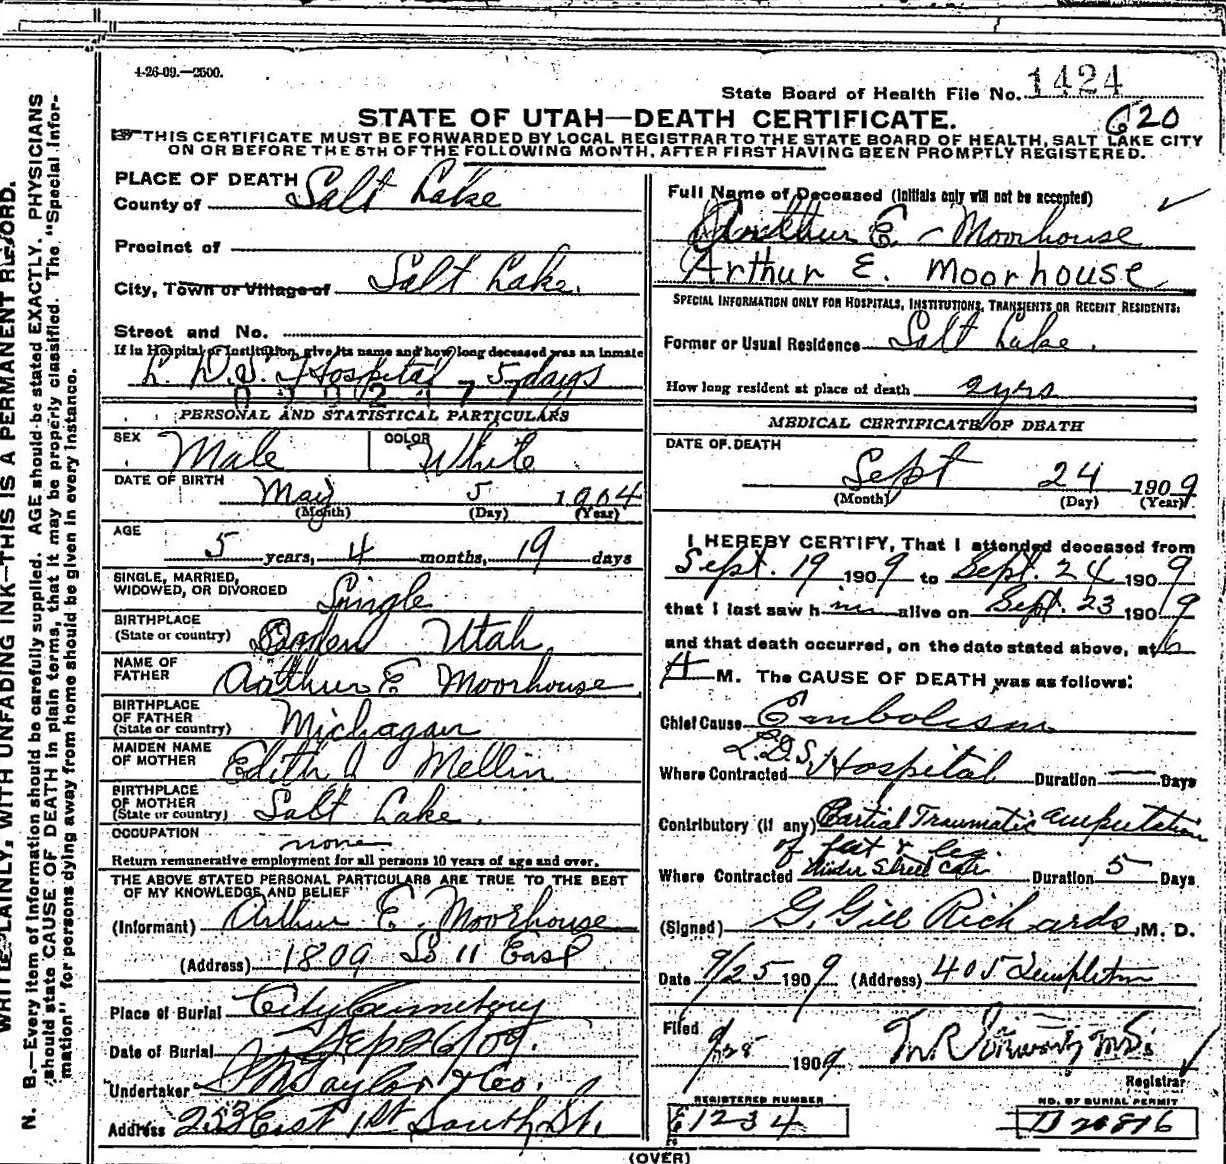 4-26-09.—2500.
State Board of Health File No. 1424
STATE OF UTAH—DEATH CERTIFICATE.
620
THIS CERTIFICATE MUST BE FORWARDED BY LOCAL REGISTRAR TO THE STATE BOARD OF HEALTH, SALT LAKE CITY
ON OR BEFORE THE 5TH OF THE FOLLOWING MONTH, AFTER FIRST HAVING BEEN PROMPTLY REGISTERED.
WRITE PLAINLY, WITH UNFADING INK—THIS IS A PERMANENT RECORD.
N. B.—Every item of information should be carefully supplied. AGE should be stated EXACTLY. PHYSICIANS
should state CAUSE OF DEATH in plain terms, that it may be properly classified. The "Special Infor-
mation" for persons dying away from home should be given in every instance.
PLACE OF DEATH
County of Salt Lake
Precinct of
City, Town or Village of Salt Lake.
Street and No.
If in Hospital or Institution, give its name and how long deceased was an inmate
L. D. S. Hospital - 5 days
PERSONAL AND STATISTICAL PARTICULARS
SEX Male COLOR White
DATE OF BIRTH May 5 1904
(Month) (Day) (Year)
AGE 5 years, 4 months, 19 days
SINGLE, MARRIED,
WIDOWED, OR DIVORCED Single
BIRTHPLACE
(State or country) Ogden Utah
NAME OF
FATHER Arthur E Moorhouse
BIRTHPLACE
OF FATHER
(State or country) Michagan
MAIDEN NAME
OF MOTHER Edith Mellin
BIRTHPLACE
OF MOTHER
(State or country) Salt Lake.
OCCUPATION none
Return remunerative employment for all persons 10 years of age and over.
THE ABOVE STATED PERSONAL PARTICULARS ARE TRUE TO THE BEST
OF MY KNOWLEDGE AND BELIEF
(Informant) Arthur E. Moorhouse
(Address) 1809 So 11 East
Place of Burial City Cemetery
Date of Burial Sep 26/09.
Undertaker S M Taylor & Co.
Address 253 East 1st South St.
Full Name of Deceased (Initials only will not be accepted)
Arthur E - Moorhouse
Arthur E. Moorhouse
SPECIAL INFORMATION ONLY FOR HOSPITALS, INSTITUTIONS, TRANSIENTS OR RECENT RESIDENTS:
Former or Usual Residence Salt Lake.
How long resident at place of death 2 yrs
MEDICAL CERTIFICATE OF DEATH
DATE OF DEATH
Sept 24 1909
(Month) (Day) (Year)
I HEREBY CERTIFY, That I attended deceased from
Sept. 19 1909 to Sept. 24 1909
that I last saw him alive on Sept. 23 1909
and that death occurred, on the date stated above, at 6
A M. The CAUSE OF DEATH was as follows:
Chief Cause Embolism
Where Contracted L.D.S. Hospital Duration — Days
Contributory (if any) Partial Traumatic amputation
of feet & leg
Where Contracted Under Street Car Duration 5 Days
(Signed) G. Gill Richards, M. D.
Date 9/25 1909 (Address) 405 Templeton
Filed 9/28 1909
Registrar
REGISTERED NUMBER
1234
NO. OF BURIAL PERMIT
20816
(OVER)